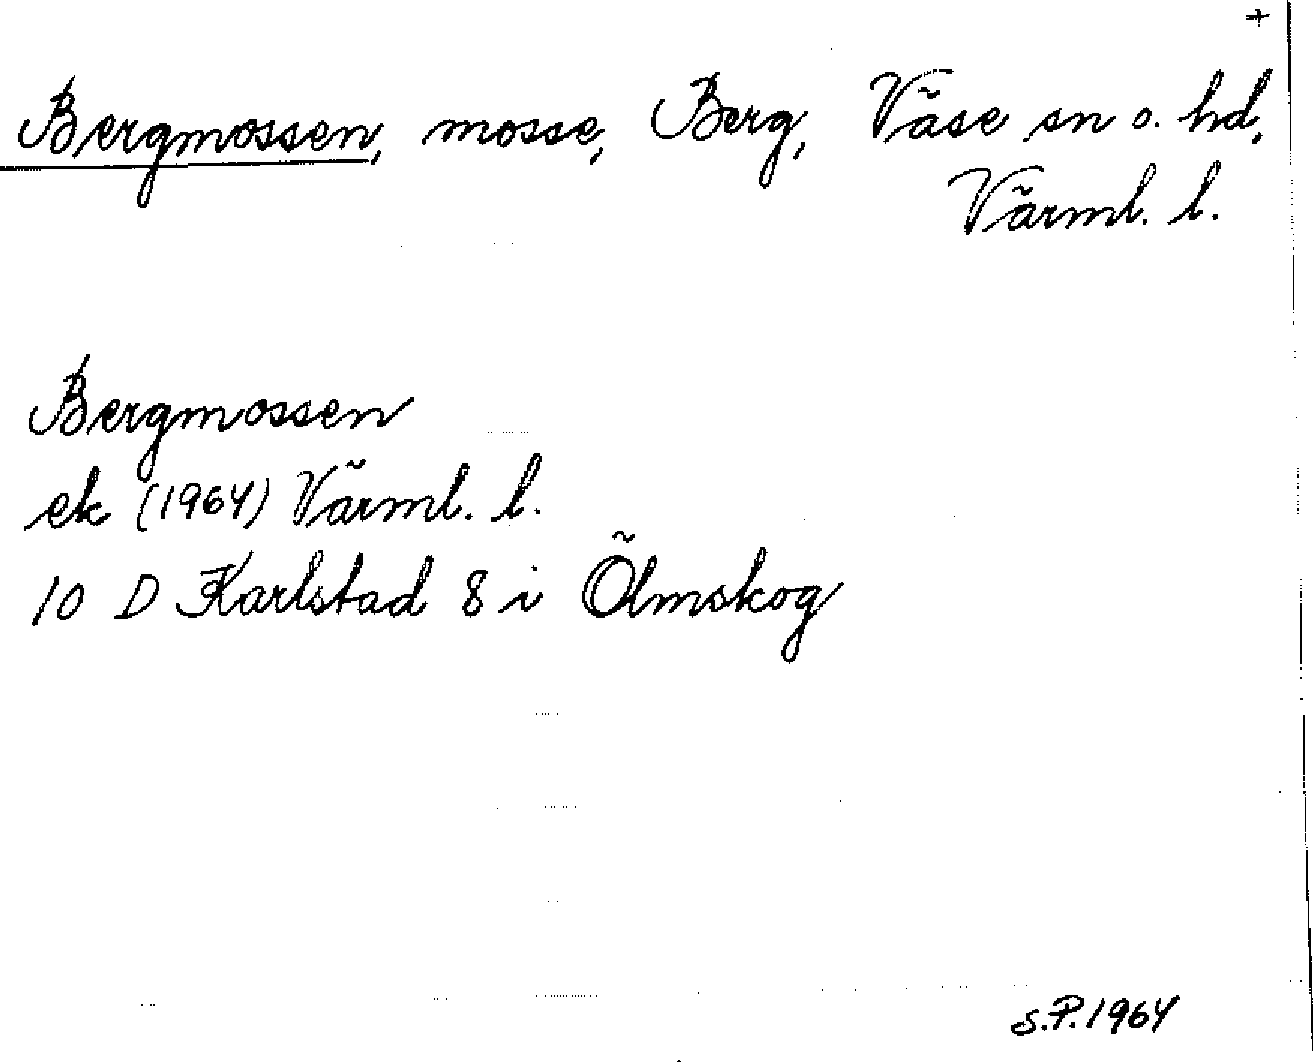 +
Bergmossen, mosse, Berg, Väse sn o. hd,
Värml. l.
Bergmossen
ek (1964) Värml. l.
10 D Karlstad 8 i Ölmskog
S.P. 1964